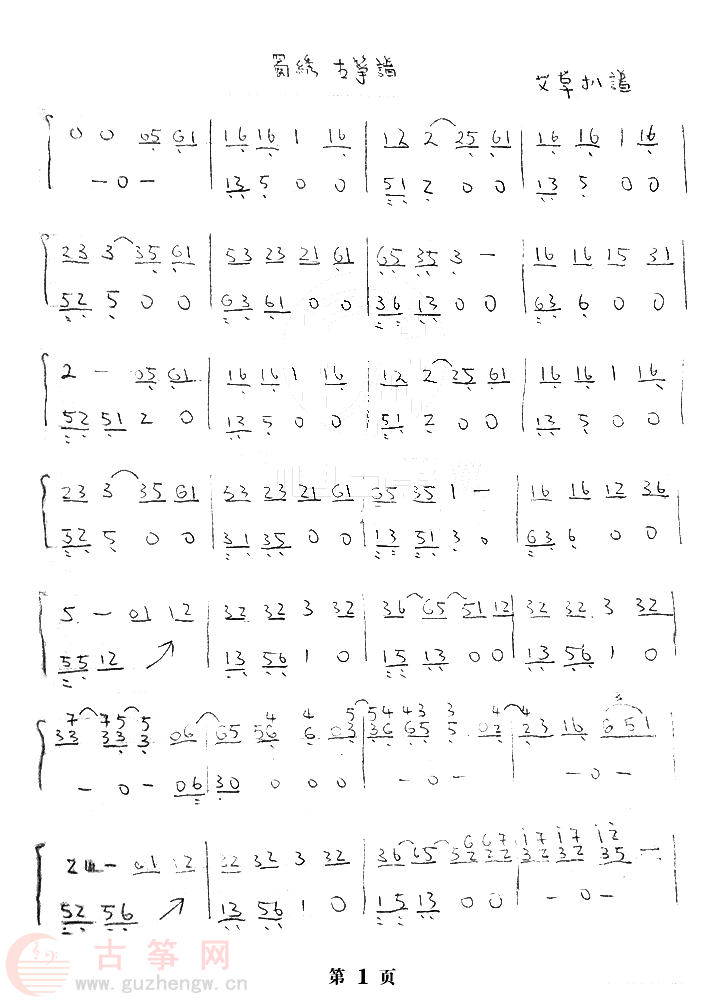 蜀绣 古筝谱
艾草扒谱
0 0 05 61 | 16 16 1 16 | 12 2 25 61 | 16 16 1 16 |
- 0 - | 13 5 0 0 | 51 2 0 0 | 13 5 0 0 |
23 3 35 61 | 53 23 21 61 | 65 35 3 - | 16 16 15 31
52 5 0 0 | 63 61 0 0 | 36 13 0 0 | 63 6 0 0 |
2 - 05 61 | 16 16 1 16 | 12 2 25 61 | 16 16 1 16
52 51 2 0 | 13 5 0 0 | 51 2 0 0 | 13 5 0 0
23 3 35 61 | 53 23 21 61 | 65 35 1 - | 16 16 12 36
52 5 0 0 | 31 35 0 0 | 13 51 3 0 | 63 6 0 0
5 - 01 12 | 32 32 3 32 | 36 65 51 12 | 32 32 3 32
55 12 ↗ | 13 56 1 0 | 15 13 0 0 | 13 56 1 0
7 7 5 5 4 4 5 5 4 4 3 3 4 4 3
33 33 3 06 | 65 56 6 03 | 36 65 5 02 | 23 16 651
- 0 - 06 | 30 0 0 0 | - 0 - | - 0 -
2 - 01 12 | 32 32 3 32 | 36 65 52 32 | 32 32 35 -
52 56 ↗ | 13 56 1 0 | 15 13 0 0 | - 0 -
古筝网
www.guzhengw.cn
第 1 页